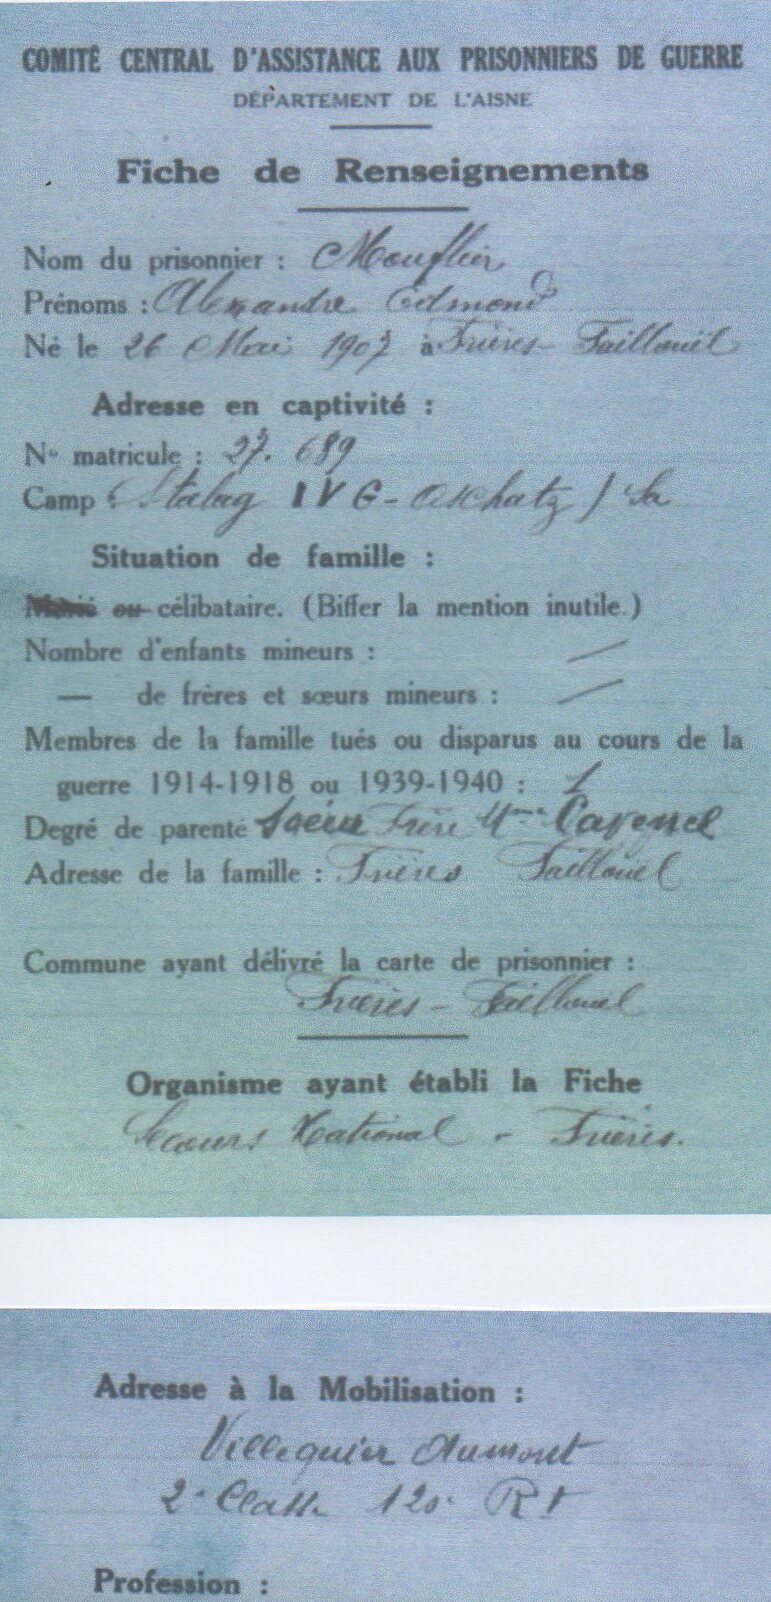 COMITÉ CENTRAL D'ASSISTANCE AUX PRISONNIERS DE GUERRE
DÉPARTEMENT DE L'AISNE
Fiche de Renseignements
Nom du prisonnier : Mouflier
Prénoms : Alexandre Edmond
Né le 26 Mai 1907 à Frières-Faillouël
Adresse en captivité :
N° matricule : 27.689
Camp : Stalag IV G - Oschatz / Sa
Situation de famille :
Marié ou célibataire. (Biffer la mention inutile.)
Nombre d'enfants mineurs : /
— de frères et sœurs mineurs : /
Membres de la famille tués ou disparus au cours de la
guerre 1914-1918 ou 1939-1940 : 1
Degré de parenté Soeur Frère Mme
Adresse de la famille : Frières Faillouel
Commune ayant délivré la carte de prisonnier :
Frières - Faillouel
Organisme ayant établi la Fiche
Secours National - Frières.
Adresse à la Mobilisation :
Villequier Aumont
2e Classe 120e RI
Profession :